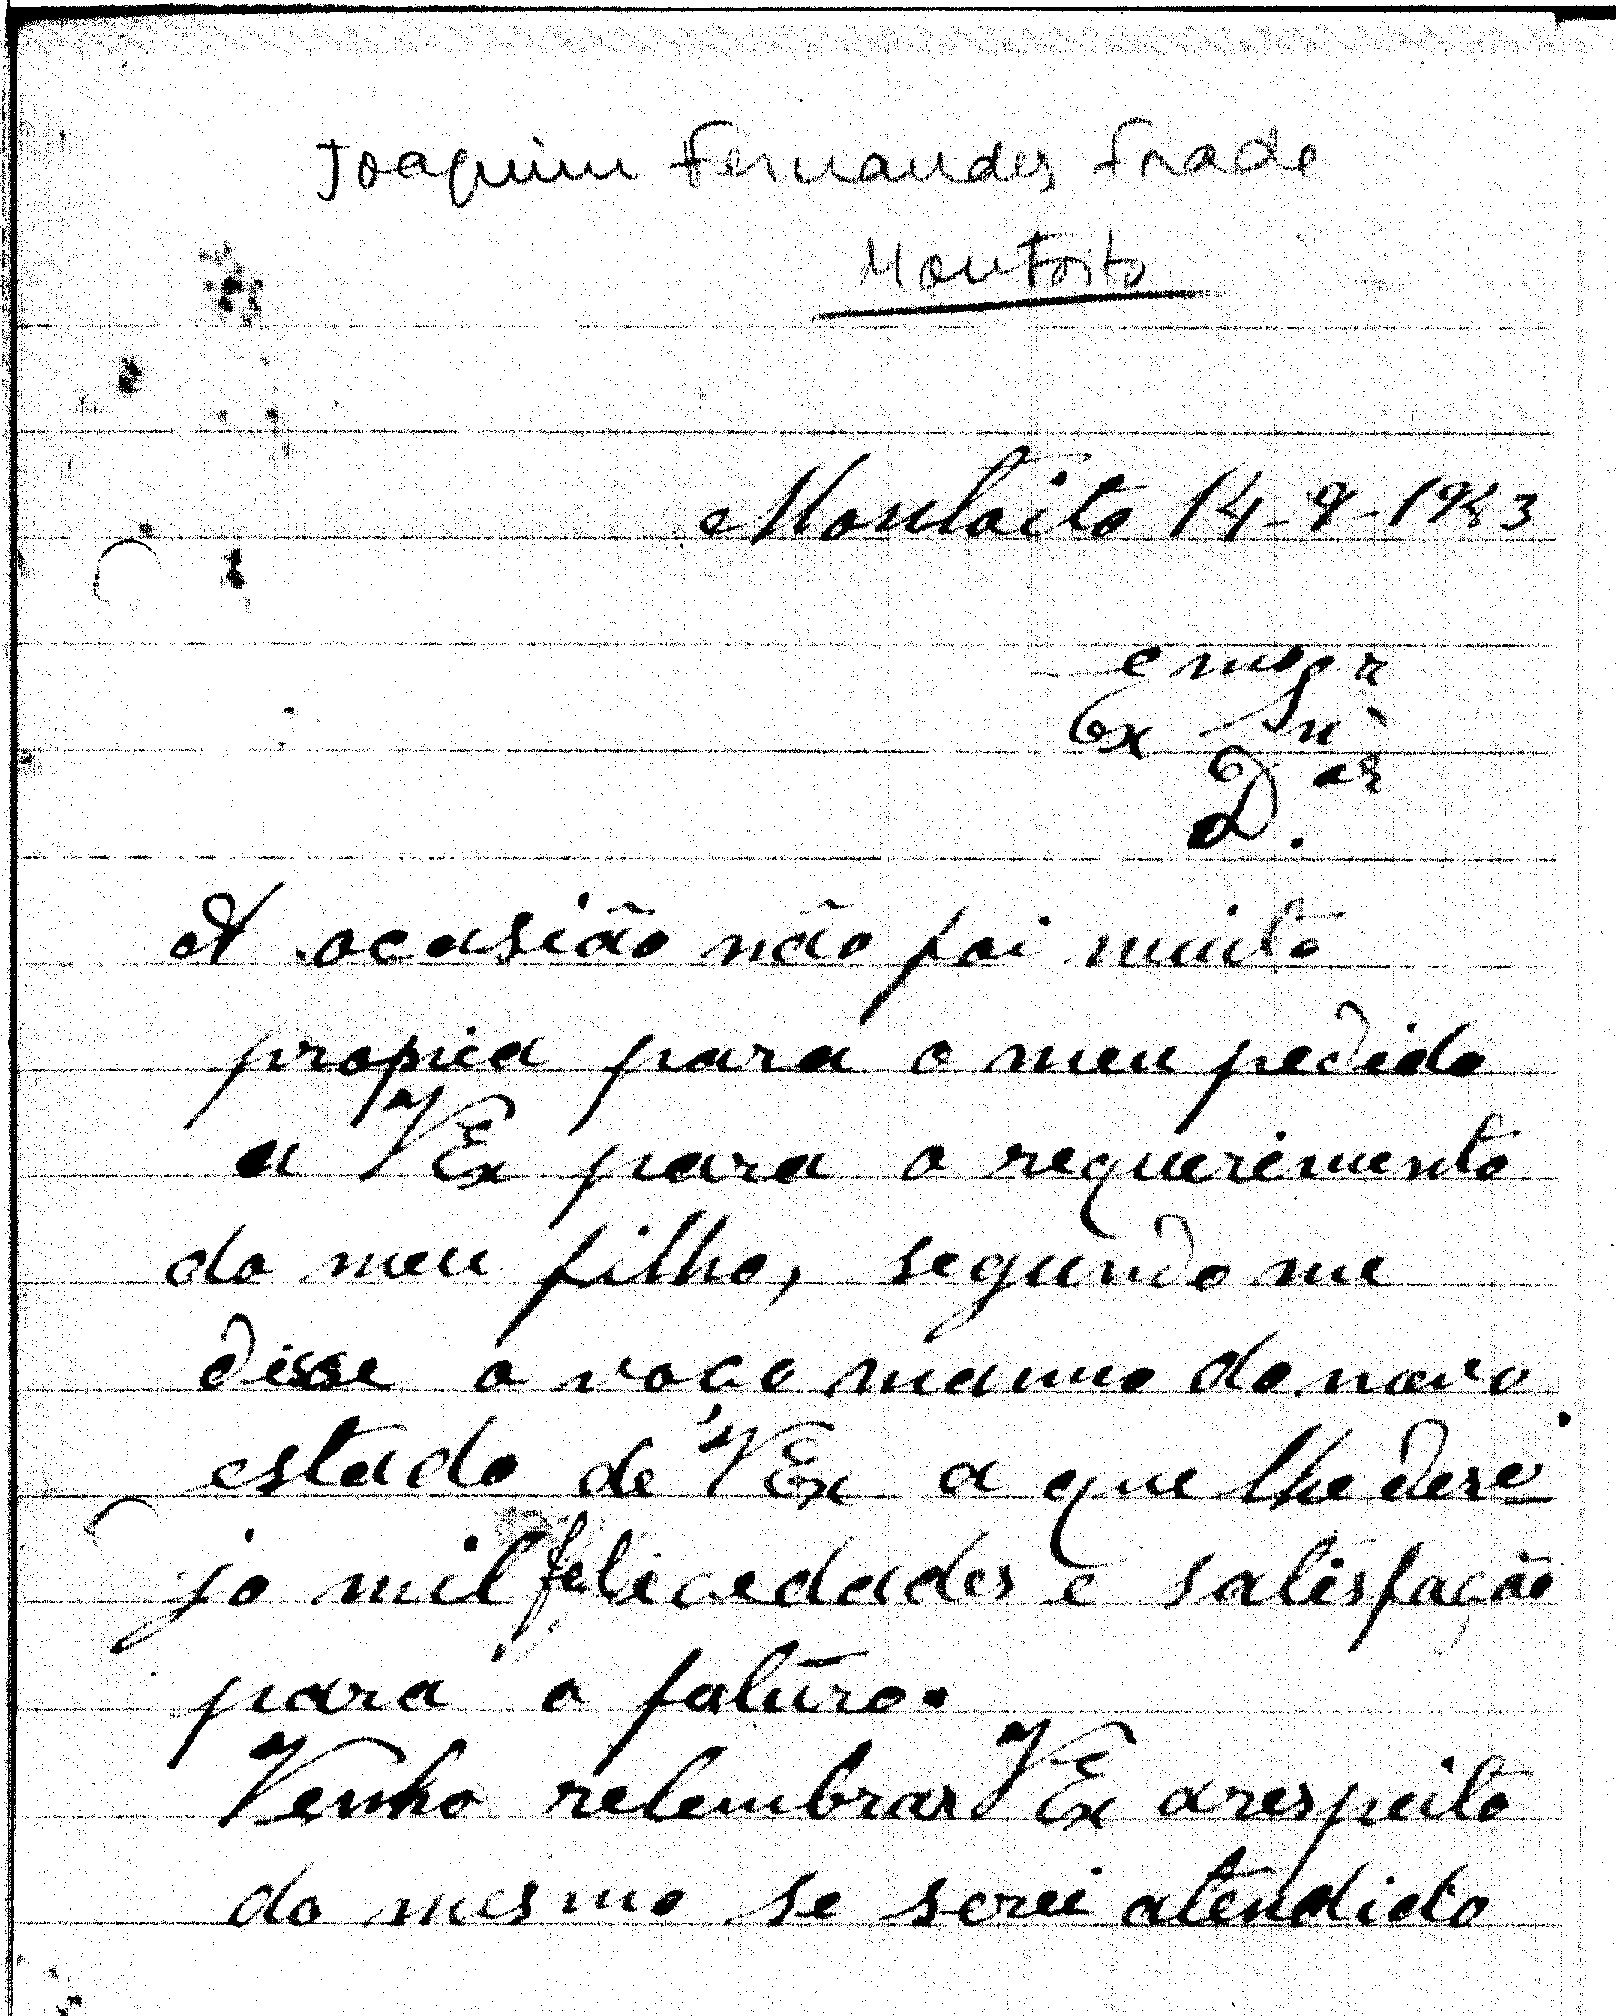 Joaquim Fernandes Frade
Montoito
Montoito 14-9-1943
Exmo Snr
Dr.
A ocasião não foi muito
propria para o meu pedido
a VEx para o requerimento
do meu filho, segundo me
disse o vosso manno do novo
estado de VEx a que lhe dese
jo mil felicedades e satisfação
para o futuro.
Venho relembrar VEx a respeito
do mesmo se serei atendido